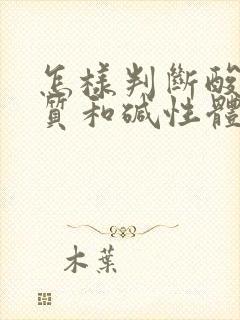 怎樣判斷酸
質和碱性體
木葉